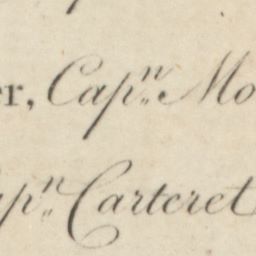 er, Capⁿ. Mo
apⁿ. Carteret